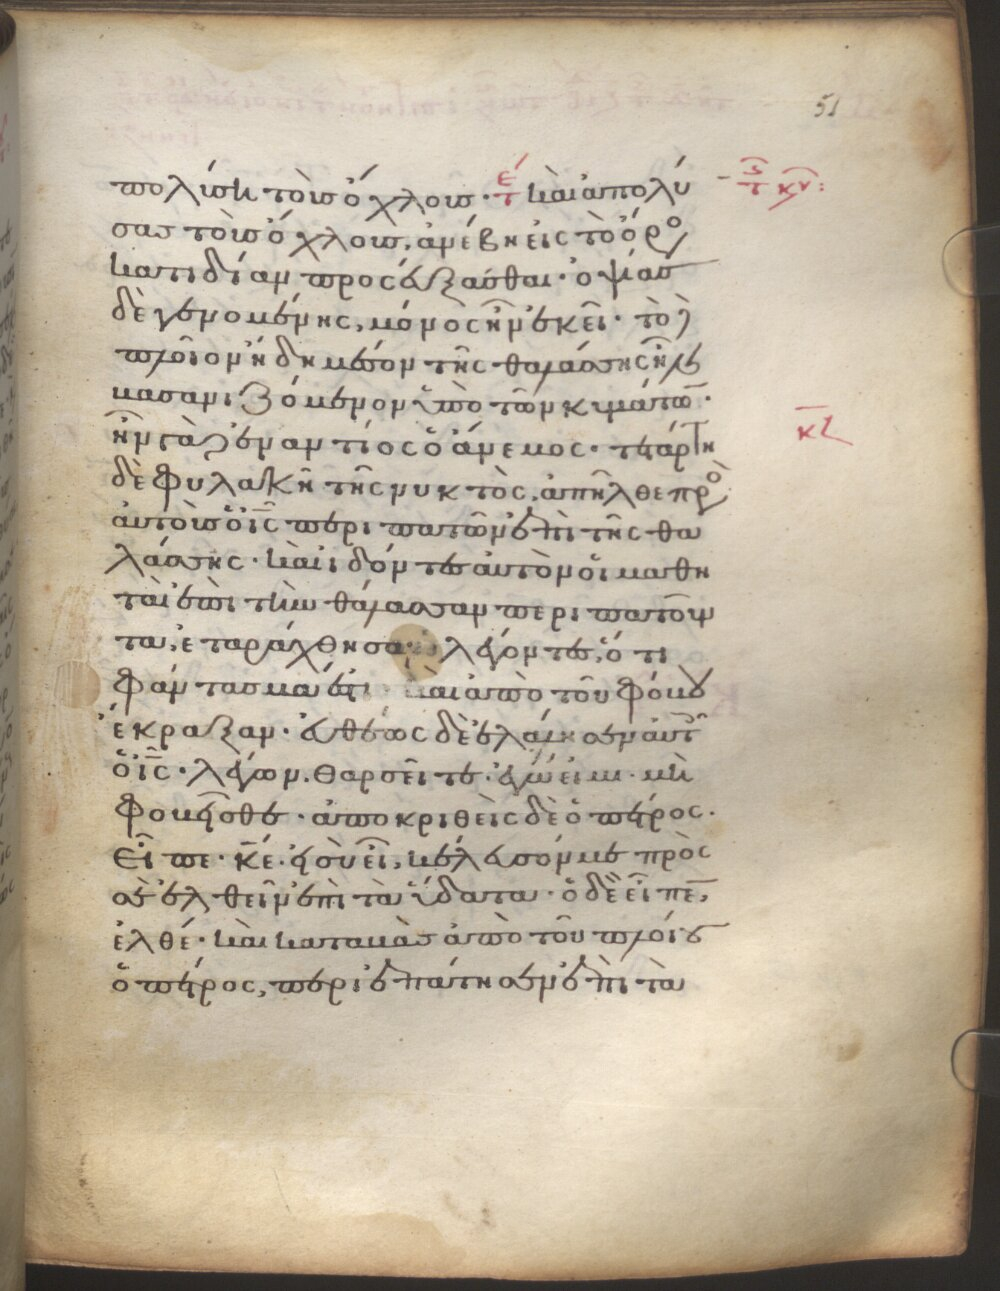 51
πολύση τοὺσ ὄχλουσ · έ̅τ καὶ ἀπολύ
σασ τοὺσ ὄχλουσ, ἀνέβη εἰς τὸ ὄρος
κατιδίαν προσεύξασθαι · ὀψίας
δὲ γενομένης, μόνος ἦν ἐκεῖ · τὸ
πλοῖον ἤδη μέσον τῆς θαλάσσης ἦν
βασανιζόμενον ὑπὸ τῶν κυμάτω̅ ·
ἦν γὰρ ἐναντίος ὁ ἄνεμος · τετάρτη
δὲ φυλακῆ τῆς νυκτὸς, ἀπῆλθε πρὸ
αὐτοὺσ ὁ ι̅ς̅ περιπατῶν ἐπὶ τῆς θα
λάσσης · καὶ ἰδόντες αὐτὸν οἱ μαθη
ταὶ ἐπὶ τὴν θάλασσαν περιπατοῦν
τα, ἐταράχθησαν λέγοντες, ὅτι
φάντασμά ἐστι καὶ ἀπὸ τοῦ φόβου
ἔκραξαν · εὐθέως δὲ ἐλάλησεν αὐτοῖ
ὁ ι̅ς̅ · λέγων. θαρσεῖτε · ἐγώ εἰμι · μὴ
φοβεῖσθε · ἀποκριθεὶς δὲ ὁ πέτρος ·
εἶπε · κ̅ε̅ · εἰ σὺ εἶ, κέλευσόν με πρὸς
σὲ ἐλθεῖν ἐπὶ τὰ ὕδατα · ὁ δὲ εἶπε̅,
ἐλθέ · καὶ καταβὰσ ἀπὸ τοῦ πλοίου
ὁ πέτρος, περιεπάτησεν ἐπὶ τὰ